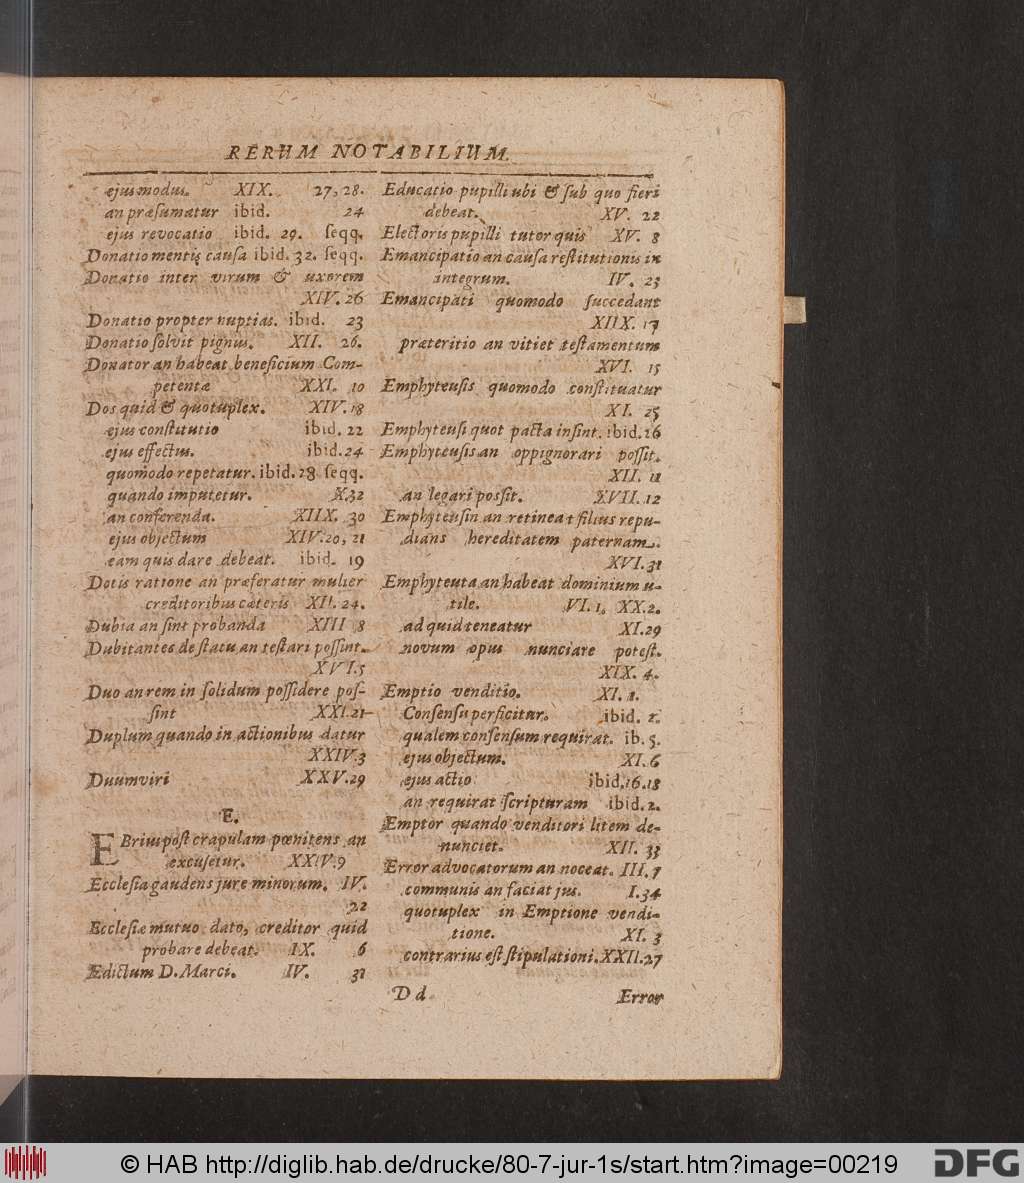 RERUM NOTABILIUM.
ejus modus. XIX. 27, 28.
an præſumatur ibid. 24
ejus revocatio ibid. 29. ſeqq.
Donatio mentis cauſa ibid. 32. ſeqq.
Donatio inter virum & uxorem
XIV. 26
Donatio propter nuptias. ibid. 23
Donatio ſolvit pignus. XII. 26.
Donator an habeat beneficium Com-
petentæ XXI. 10
Dos quid & quotuplex. XIV. 18
ejus conſtitutio ibid. 22
ejus effectus. ibid. 24
quomodo repetatur. ibid. 28 ſeqq.
quando imputetur. X. 32
an conferenda. XIIX. 30
ejus objectum XIV. 20, 21
eam quis dare debeat. ibid. 19
Dotis ratione an præferatur mulier
creditoribus cæteris XII. 24.
Dubia an ſint probanda XIII 8
Dubitantes de ſtatu an teſtari poſſint.
XVI. 5
Duo an rem in ſolidum poſſidere poſ-
ſint XXI. 21
Duplum quando in actionibus datur
XXIV. 3
Duumviri XXV. 29
E.
EBrius poſt crapulam pœnitens an
excuſetur. XXIV. 9
Eccleſia gaudens jure minorum. IV.
22
Eccleſiæ mutuo dato, creditor quid
probare debeat. IX. 6
Edictum D. Marci. IV. 31
Educatio pupilli ubi & ſub quo fieri
debeat. XV. 22
Electoris pupilli tutor quis XV. 8
Emancipatio an cauſa reſtitutionis in
integrum. IV. 23
Emancipati quomodo ſuccedant
XIIX. 17
præteritio an vitiet teſtamentum
XVI. 15
Emphyteuſis quomodo conſtituatur
XI. 25
Emphyteuſi quot pacta inſint. ibid. 26
Emphyteuſis an oppignorari poſſit.
XII. 11
an legari poſſit. XVII. 12
Emphyteuſin an retineat filius repu-
dians hereditatem paternam.
XVI. 31
Emphyteuta an habeat dominium u-
tile. VI. 1. XX. 2.
ad quid teneatur XI. 29
novum opus nunciare poteſt.
XIX. 4.
Emptio venditio. XI. 1.
Conſenſu perficitur. ibid. 2.
qualem conſenſum requirat. ib. 5.
ejus objectum. XI. 6
ejus actio ibid. 16. 18
an requirat ſcripturam ibid. 2.
Emptor quando venditori litem de-
nunciet. XII. 33
Error advocatorum an noceat. III. 7
communis an faciat jus. I. 34
quotuplex in Emptione vendi-
tione. XI. 3
contrarius eſt ſtipulationi. XXII. 27
D d Error
© HAB http://diglib.hab.de/drucke/80-7-jur-1s/start.htm?image=00219
DFG